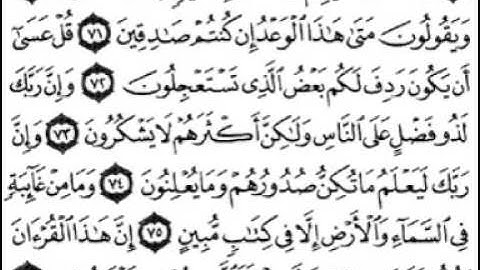 وَيَقُولُونَ مَتَىٰ هَٰذَا ٱلْوَعْدُ إِن كُنتُمْ صَٰدِقِينَ ٧١ قُلْ عَسَىٰٓ
أَن يَكُونَ رَدِفَ لَكُم بَعْضُ ٱلَّذِى تَسْتَعْجِلُونَ ٧٢ وَإِنَّ رَبَّكَ
لَذُو فَضْلٍ عَلَى ٱلنَّاسِ وَلَٰكِنَّ أَكْثَرَهُمْ لَا يَشْكُرُونَ ٧٣ وَإِنَّ
رَبَّكَ لَيَعْلَمُ مَا تُكِنُّ صُدُورُهُمْ وَمَا يُعْلِنُونَ ٧٤ وَمَا مِنْ غَآئِبَةٍ
فِى ٱلسَّمَآءِ وَٱلْأَرْضِ إِلَّا فِى كِتَٰبٍ مُّبِينٍ ٧٥ إِنَّ هَٰذَا ٱلْقُرْءَانَ